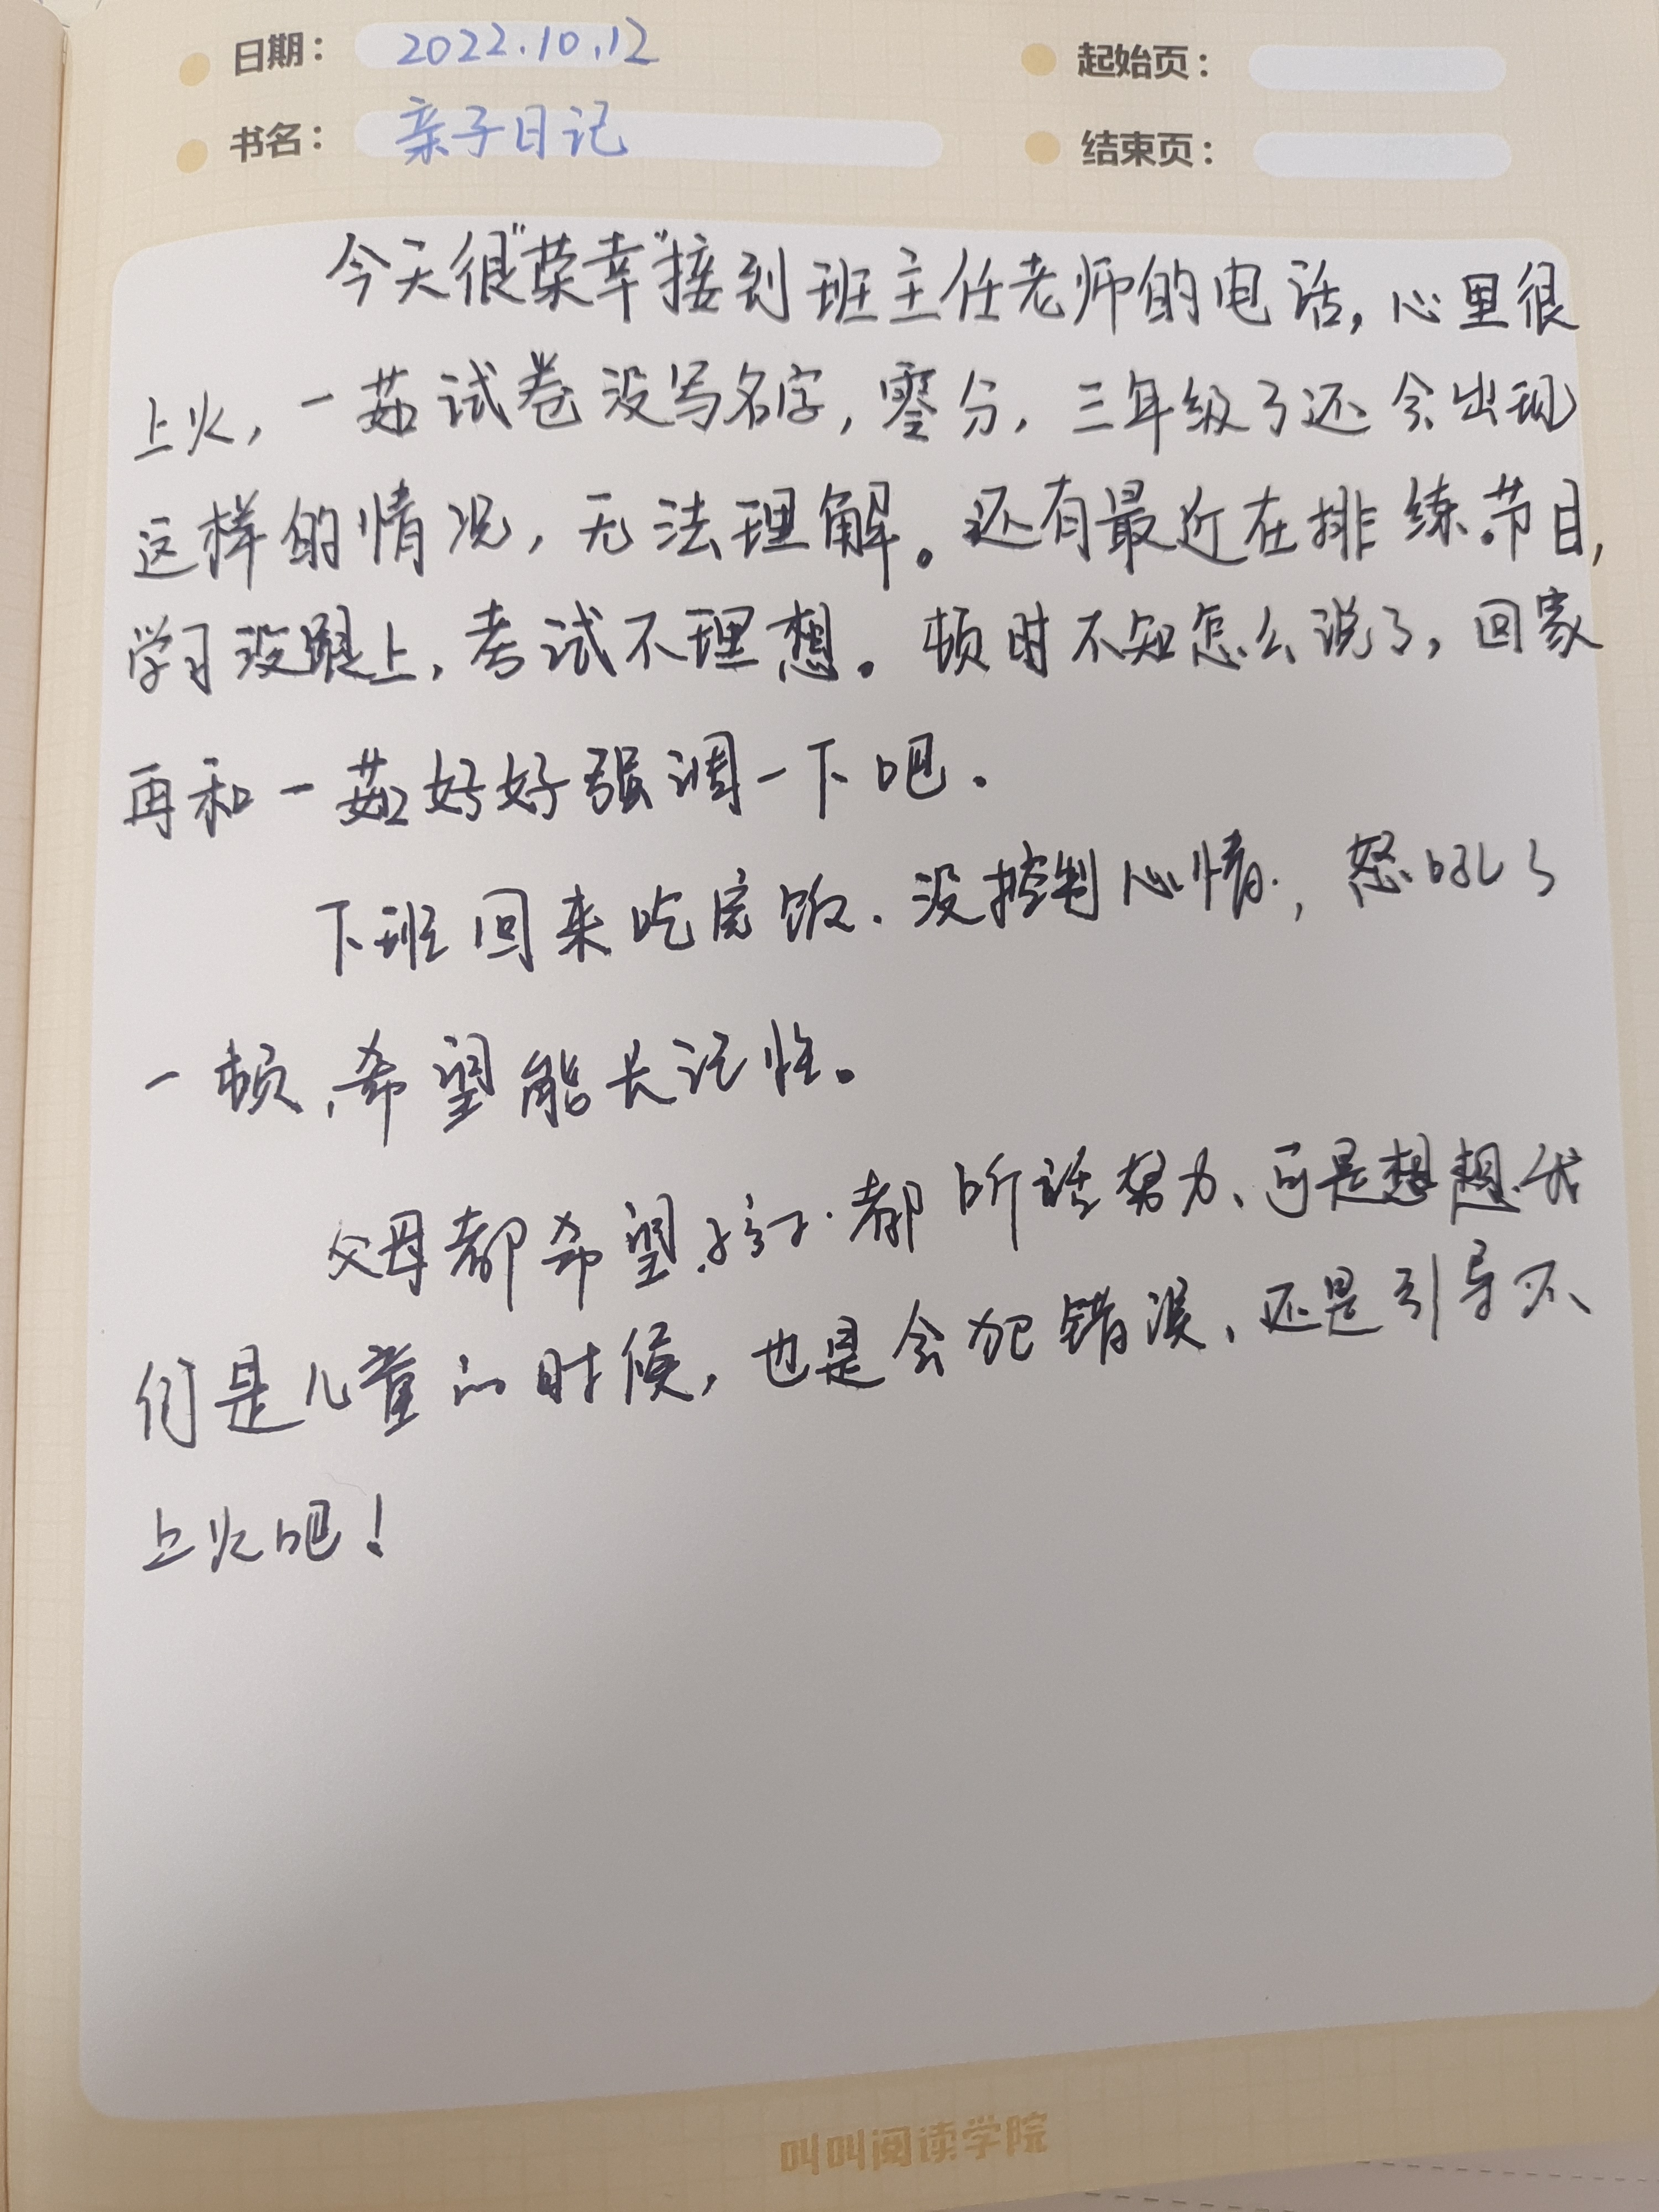 日期：2022.10.12
起始页：
书名：亲子日记
结束页：
今天很"荣幸"接到班主任老师的电话，心里很
上火，一茹试卷没写名字，零分，三年级了还会出现
这样的情况，无法理解。还有最近在排练节目，
学习没跟上，考试不理想。顿时不知怎么说了，回家
再和一茹好好强调一下吧。
下班回来吃完饭，没控制心情，怒吼了
一顿，希望能长记性。
父母都希望孩子都听话努力、可是想想我
们是儿童的时候，也是会犯错误、还是引导不
上火吧！
叫叫阅读学院